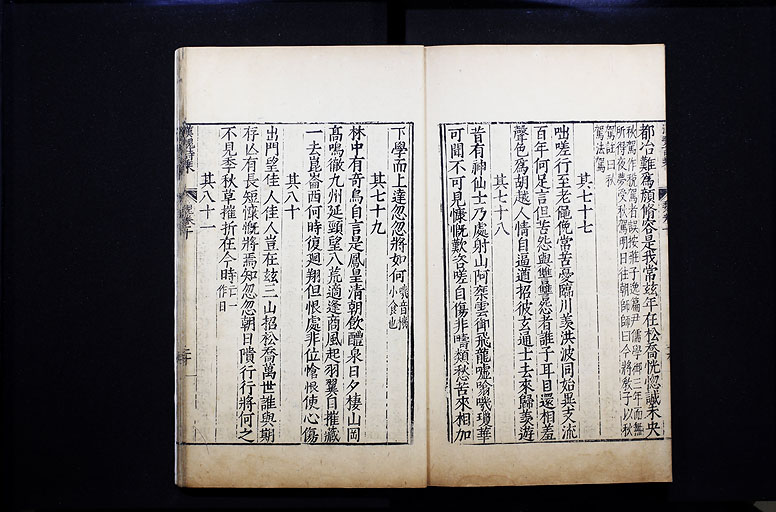 都冶難爲顏脩容是我常茲年在松喬恍惚誠未央
秋駕作稅駕者誤按莊子逸篇尹儒學御三年而無
所得夜夢受秋駕明日往朝師師曰今將教子以秋
駕註曰秋
駕法駕
其七十七
咄嗟行至老僶俛常苦憂臨川羨洪波同始異支流
百年何足言但苦怨與讐讐怨者誰子耳目還相羞
聲色爲胡越人情自逼遒招彼玄通士去來歸羨遊
其七十八
昔有神仙士乃處射山阿椉雲御飛龍噓噏嘰瓊華
可聞不可見慷慨歎咨嗟自傷非疇類愁苦來相加
下學而上達忽忽將如何
小食也
其七十九
林中有奇鳥自言是鳳皇清朝飲醴泉日夕棲山岡
高鳴徹九州延頸望八荒適逢商風起羽翼自摧藏
一去崑崙西何時復迴翔但恨處非位愴恨使心傷
其八十
出門望佳人佳人豈在茲三山招松喬萬世誰與期
存亾有長短慷慨將焉知忽忽朝日隤行行將何之
不見季秋草摧折在今時
亡一
作日
其八十一